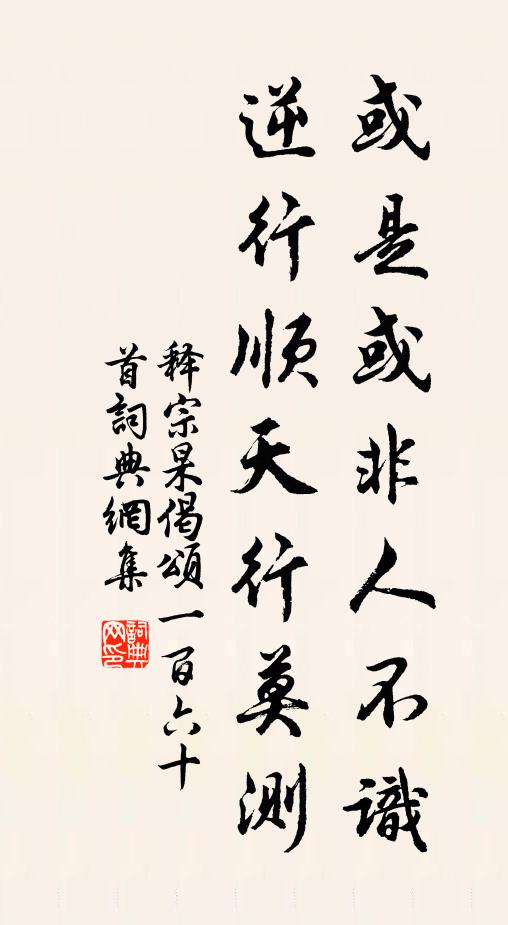 或是或非人不識
逆行順天行莫測
释宗杲偈頌一百六十
首詞典網集
詞典網印